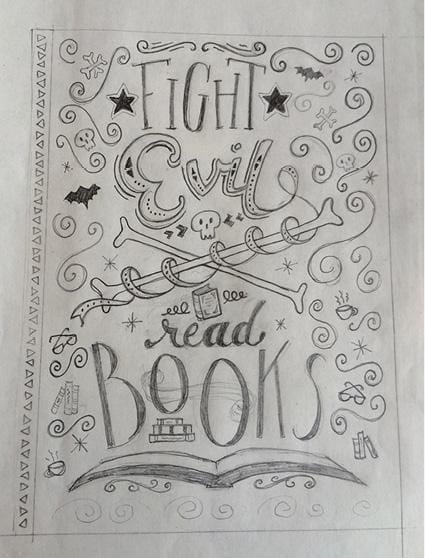 FIGHT
Evil
read
BOOKS